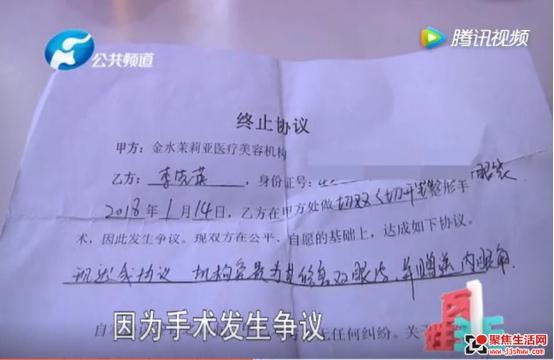 公共频道
腾讯视频
终止协议
甲方：金水茉莉亚医疗美容机构
乙方：李完英，身份证号：
2018年1月14日，乙方在甲方处做切双（切开）整形手
术，因此发生争议。现双方在公平、自愿的基础上，达成如下协议。
现达成协议 机构 为其修复双眼皮，并赠送内眼角
因为手术发生争议
任何纠纷。
百姓
聚焦生活网
www.jjshw.com